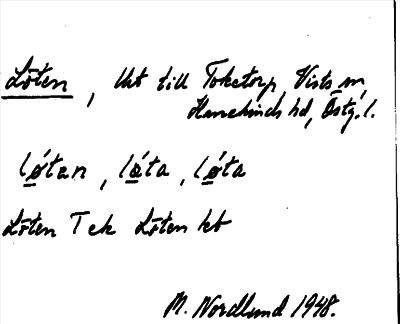 Löten, Ut till Toketorp, Vists sn,
Hanekinds hd, Östg. l.
lǿ̱tən, lǿ̱ta, lǿ̱ta
Löten T ek Löten kt
M. Nordlund 1948.